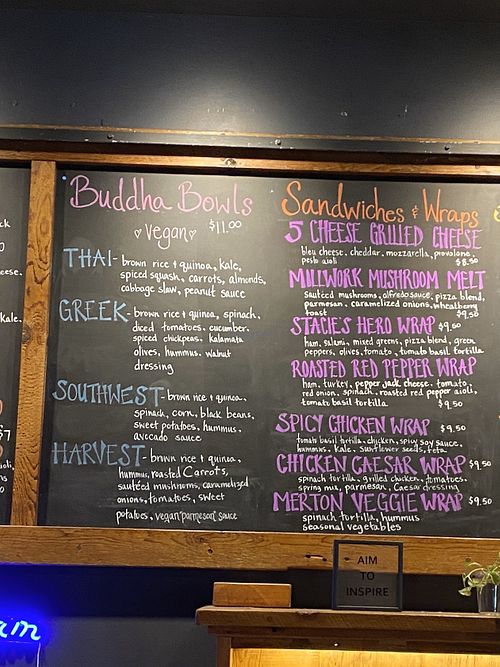 Buddha Bowls
vegan $11.00
THAI- brown rice + quinoa, kale,
spiced squash, carrots, almonds,
cabbage slaw, peanut sauce
GREEK- brown rice + quinoa, spinach,
diced tomatoes, cucumber,
spiced chickpeas, kalamata
olives, hummus, walnut
dressing
SOUTHWEST- brown rice + quinoa,
spinach, corn, black beans,
sweet potatoes, hummus,
avocado sauce
HARVEST- brown rice + quinoa,
hummus, roasted carrots,
sautéed mushrooms, caramelized
onions, tomatoes, sweet
potatoes, vegan "parmesan" sauce
Sandwiches & Wraps
5 CHEESE GRILLED CHEESE
bleu cheese, cheddar, mozzarella, provolone,
pesto aioli $8.50
MILLWORK MUSHROOM MELT
sautéed mushrooms, alfredo sauce, pizza blend,
parmesan, caramelized onions, wheatberry
toast $9.50
STACIE'S HERO WRAP $9.50
ham, salami, mixed greens, pizza blend, green
peppers, olives, tomato, tomato basil tortilla
ROASTED RED PEPPER WRAP
ham, turkey, pepper jack cheese, tomato,
red onion, spinach, roasted red pepper aioli,
tomato basil tortilla $9.50
SPICY CHICKEN WRAP $9.50
tomato basil tortilla, chicken, spicy soy sauce,
hummus, kale, sunflower seeds, feta
CHICKEN CAESAR WRAP $9.50
spinach tortilla, grilled chicken, tomatoes,
spring mix, parmesan, Caesar dressing
MERTON VEGGIE WRAP $9.50
spinach tortilla, hummus
seasonal vegetables
AIM
TO
INSPIRE